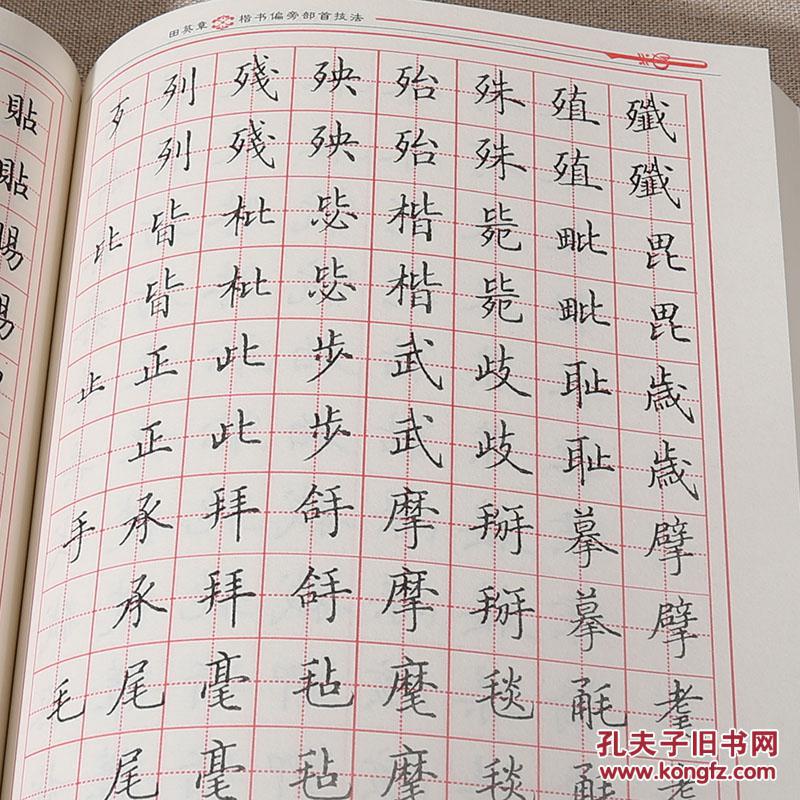 田英章 楷书偏旁部首技法
貼
貼
賜
賜
歹 列 殘 殃 殆 殊 殖 殲
列 殘 殃 殆 殊 殖 殲
比 皆 枇 毖 楷 毙 毗 毘
皆 枇 毖 楷 毙 毗 毘
止 正 此 步 武 歧 耻 歲
正 此 步 武 歧 耻 歲
手 承 拜 摩 掰 摹 擘
承 拜 摩 掰 摹 擘
毛 尾 毫 毡 麾 毯 耄
尾 毫 毡 麾 毯
孔夫子旧书网
www.kongfz.com